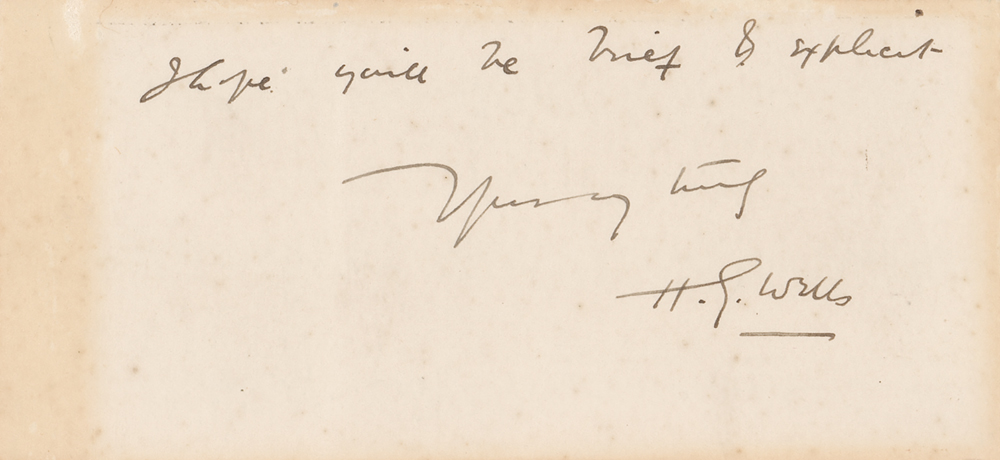 I hope you'll be brief & explicit
Yours very truly
H. G. Wells